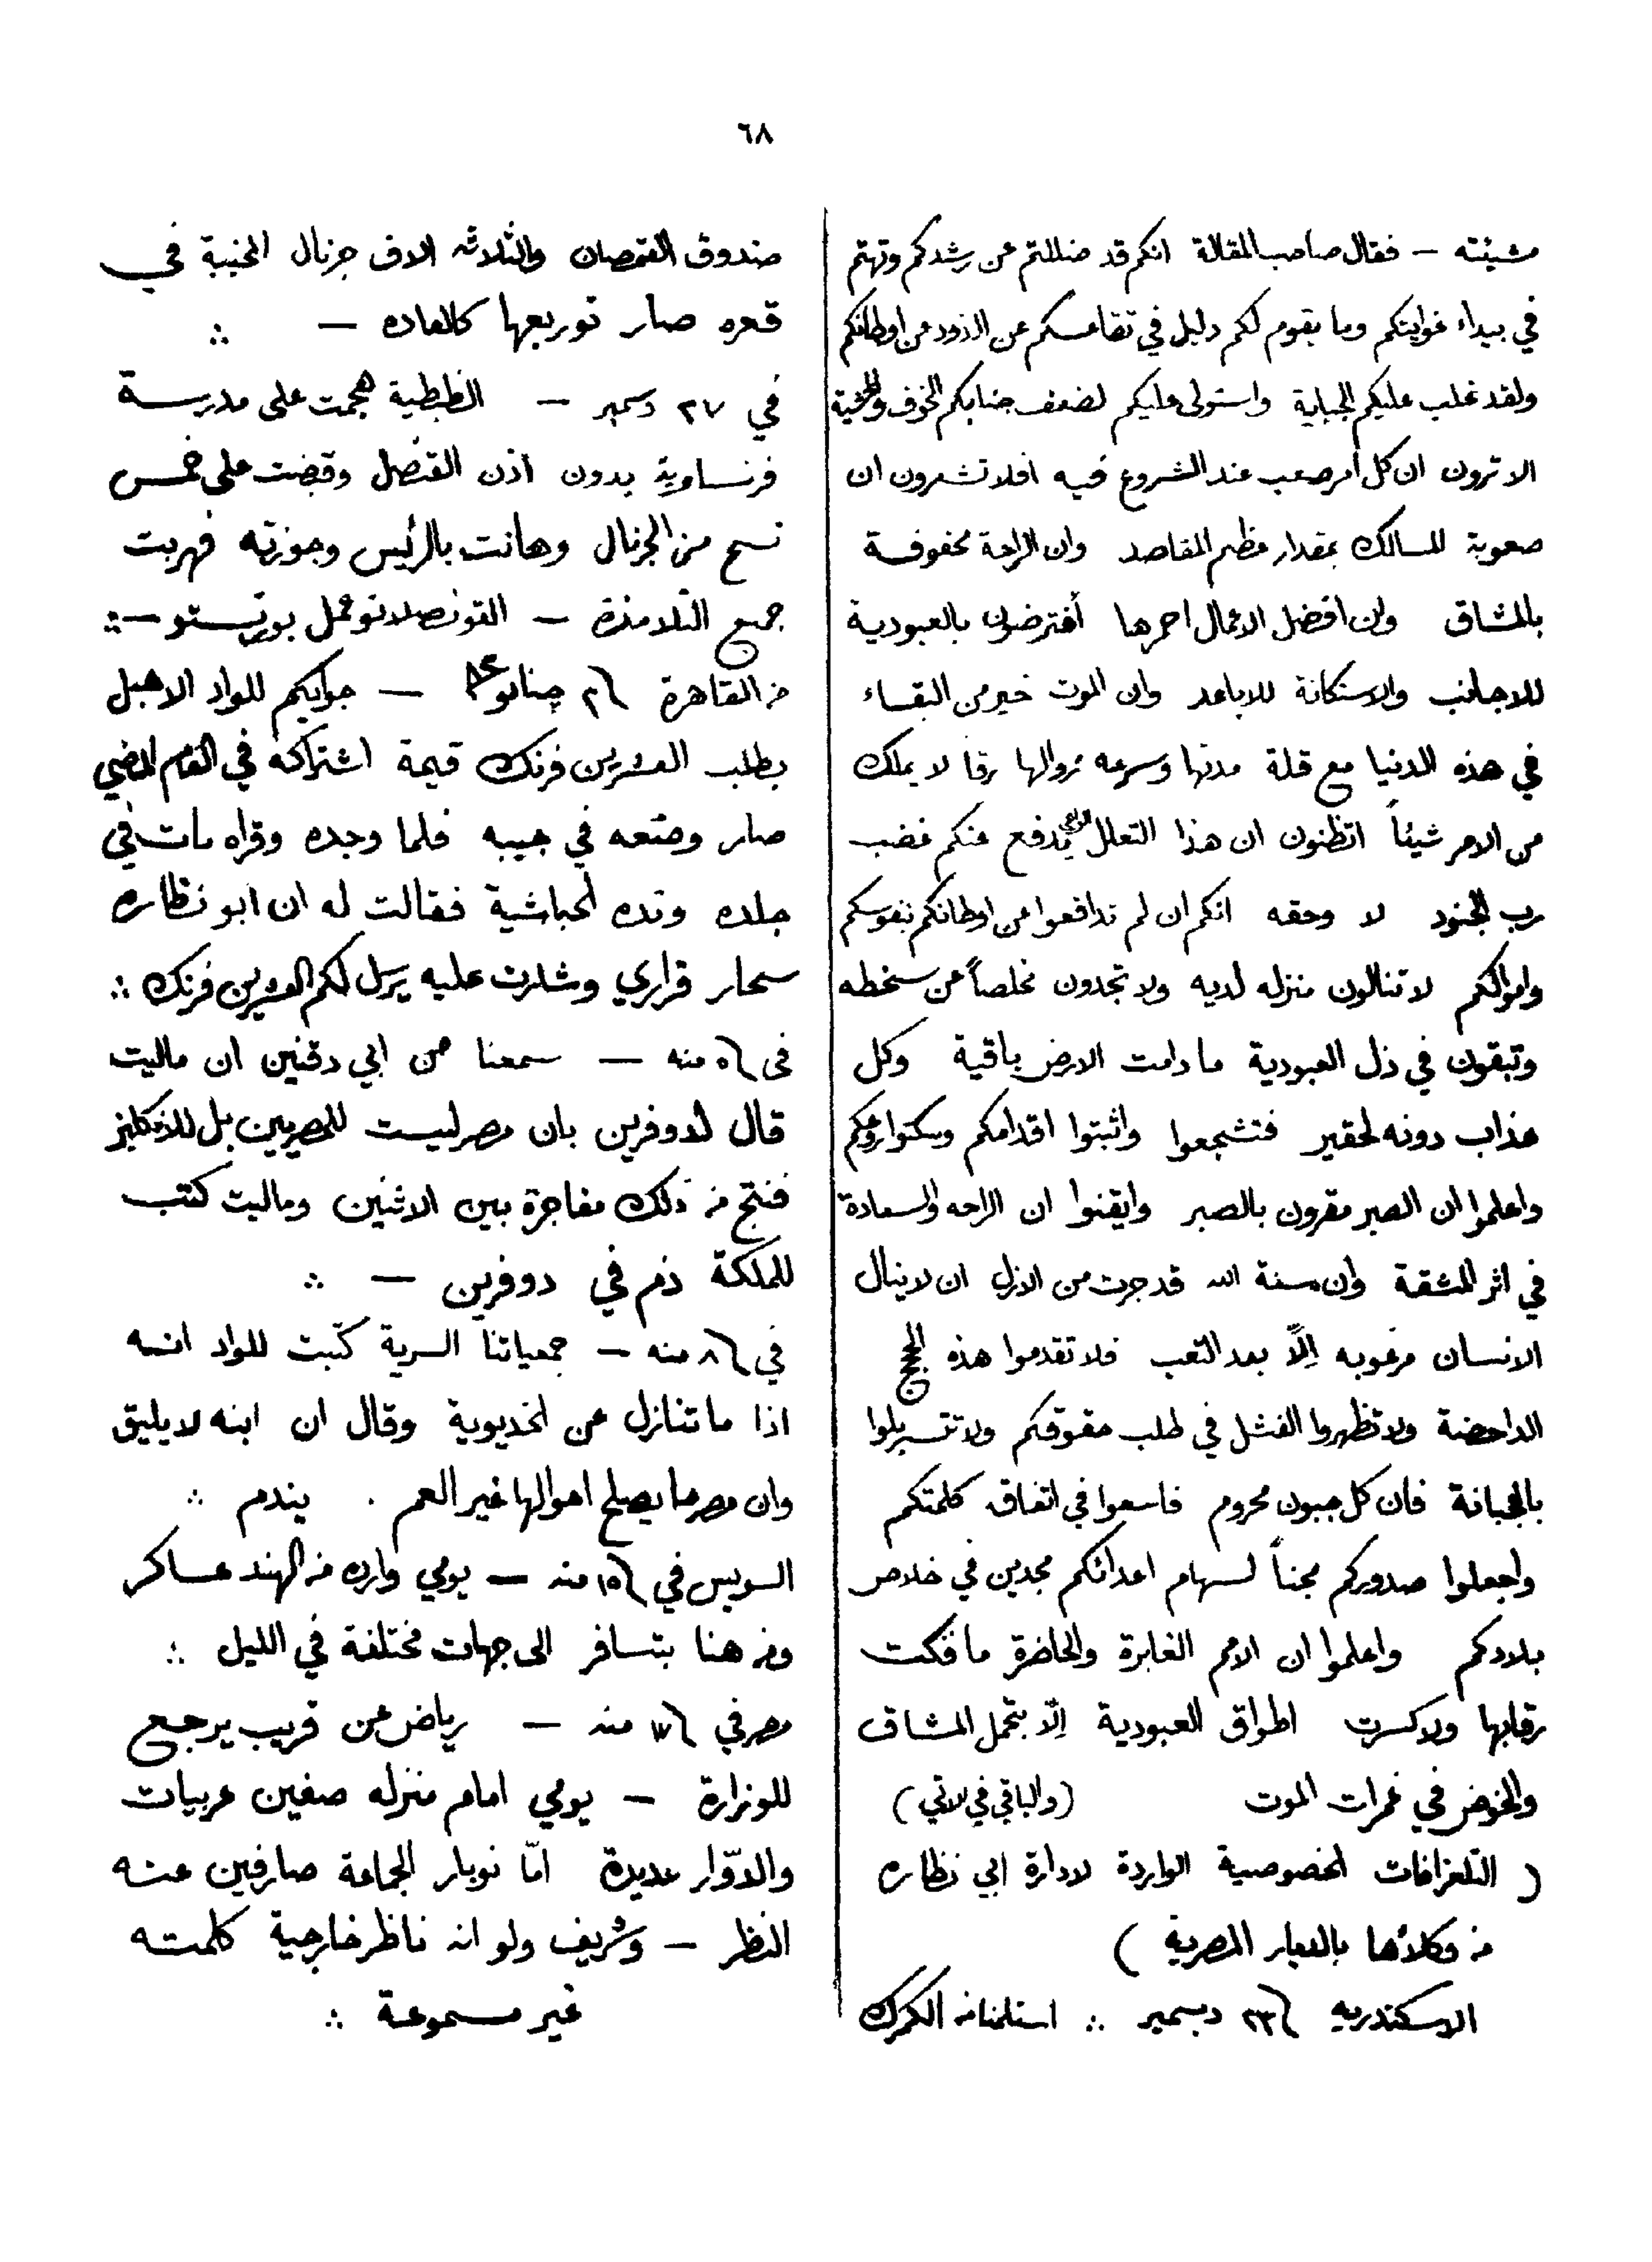 ٦٨
مشيئته — فقال صاحب المقالة انكم قد ضللتم عن رشدكم وتهتم
في بيداء غوايتكم وما يقوم لكم دليل في تقاعسكم عن الذود عن اوطانكم
ولقد غلب عليكم الجبانة واستولى عليكم لضعف جنابكم الخوف والخشية
الا ترون ان كل أمر صعب عند الشروع فيه افلا تشعرون ان
صعوبة المسالك بمقدار عظم المقاصد وان الراحة محفوفة
بالمشاق وان افضل الاعمال احمزها أفترضون بالعبودية
للاجانب والاستكانة للاباعد وان الموت خير من البقاء
في هذه الدنيا مع قلة مدتها وسرعه زوالها رقا لا يملك
من الامر شيئاً اتظنون ان هذا التعلل يدفع عنكم غضب
رب الجنود لا وحقه انكم ان لم تدافعوا عن اوطانكم بنفوسكم
واموالكم لا تنالون منزله لديه ولا تجدون مخلصاً من سخطه
وتبقون في ذل العبودية ما دامت الارض باقية وكل
عذاب دونه لحقير فتشجعوا واثبتوا اقدامكم وسكنوا روعكم
واعلموا ان الصبر مقرون بالصبر وايقنوا ان الراحه والسعادة
في اثر المشقة وان سنة الله قد جرت من الازل ان لا ينال
الانسان مرغوبه إلّا بعد التعب فلا تقدموا هذه الحجج
الداحضة ولا تظهروا الفشل في طلب حقوقكم ولا تتسربلوا
بالجبانة فان كل جبون محروم فاسعوا في اتفاق كلمتكم
واجعلوا صدوركم مجناً لسهام اعدائكم مجدين في خلاص
بلادكم واعلموا ان الامم الغابرة والحاضرة ما فكت
رقابها ولا كسرت اطواق العبودية إلّا بتحمل المشاق
والخوض في غمرات الموت (والباقي في لاتي)
( التلغرافات الخصوصية الواردة لادارة ابي نظاره
من وكلائها بالديار المصرية )
الاسكندريه ٢٣ دسمبر ∴ استلمنا من الكمرك
صندوق القمصان والثلاثه الاف جرنال المخبية في
قعره صار توريعها كالعاده — ∴
في ٢٧ دسمبر — الظبطية هجمت على مدرسة
فرنساوية بدون اذن القنصل وقبضت على خمس
نسح من الجرنال وهانت بالرئيس وجوزته فهربت
جميع التلامذة — القونصلاتو عمل بورتيستو — ∴
من القاهرة ٢ جنايو ٨٤ — جوابكم للواد الاهبل
بطلب العشرين فرنك قيمة اشتراكه في العام الماضي
صار وضعه في جيبه فلما وجده وقراه مات في
جلده ونده لحباشية فقالت له ان ابو نظاره
سحار قراري وشارت عليه يرسل لكم العشرين فرنك ∴
في ٥ منه — سمعنا من ابي دقنين ان ماليت
قال لدوفرين بان مصر ليست للمصريين بل للانكليز
فنتج من ذلك مفاجرة بين الاثنين وماليت كتب
للملكة ذم في دوفرين — ∴
في ٨ منه — جمعياتنا السرية كتبت للواد انه
اذا ما تنازل عن الخديوية وقال ان ابنه لا يليق
وان مصر ما يصلح احوالها غير العم . يندم ∴
السويس في ١٥ منه — يومي وارده من الهند عساكر
ومن هنا بتسافر الى جهات مختلفة في الليل ∴
مصر في ١٧ منه — رياض عن قريب يرجع
للوزارة — يومي امام منزله صفين عربيات
والدوّار عديدة امّا نوبار الجماعة صارفين عنه
النظر — وشريف ولو انه ناظر خارجية كلمته
غير مسموعة ∴